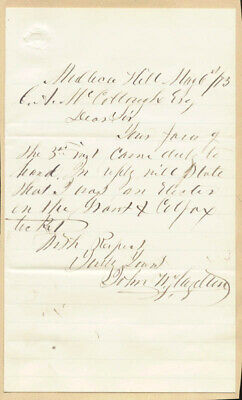 Hill May 6th /73
C. A. McCollough Esq
Dear Sir
Your favor of
the 3rd inst came duly to
hand. In reply will State
that I was an Elector
on the Grant & Colfax
ticket
With Respect
Truly Yours
John